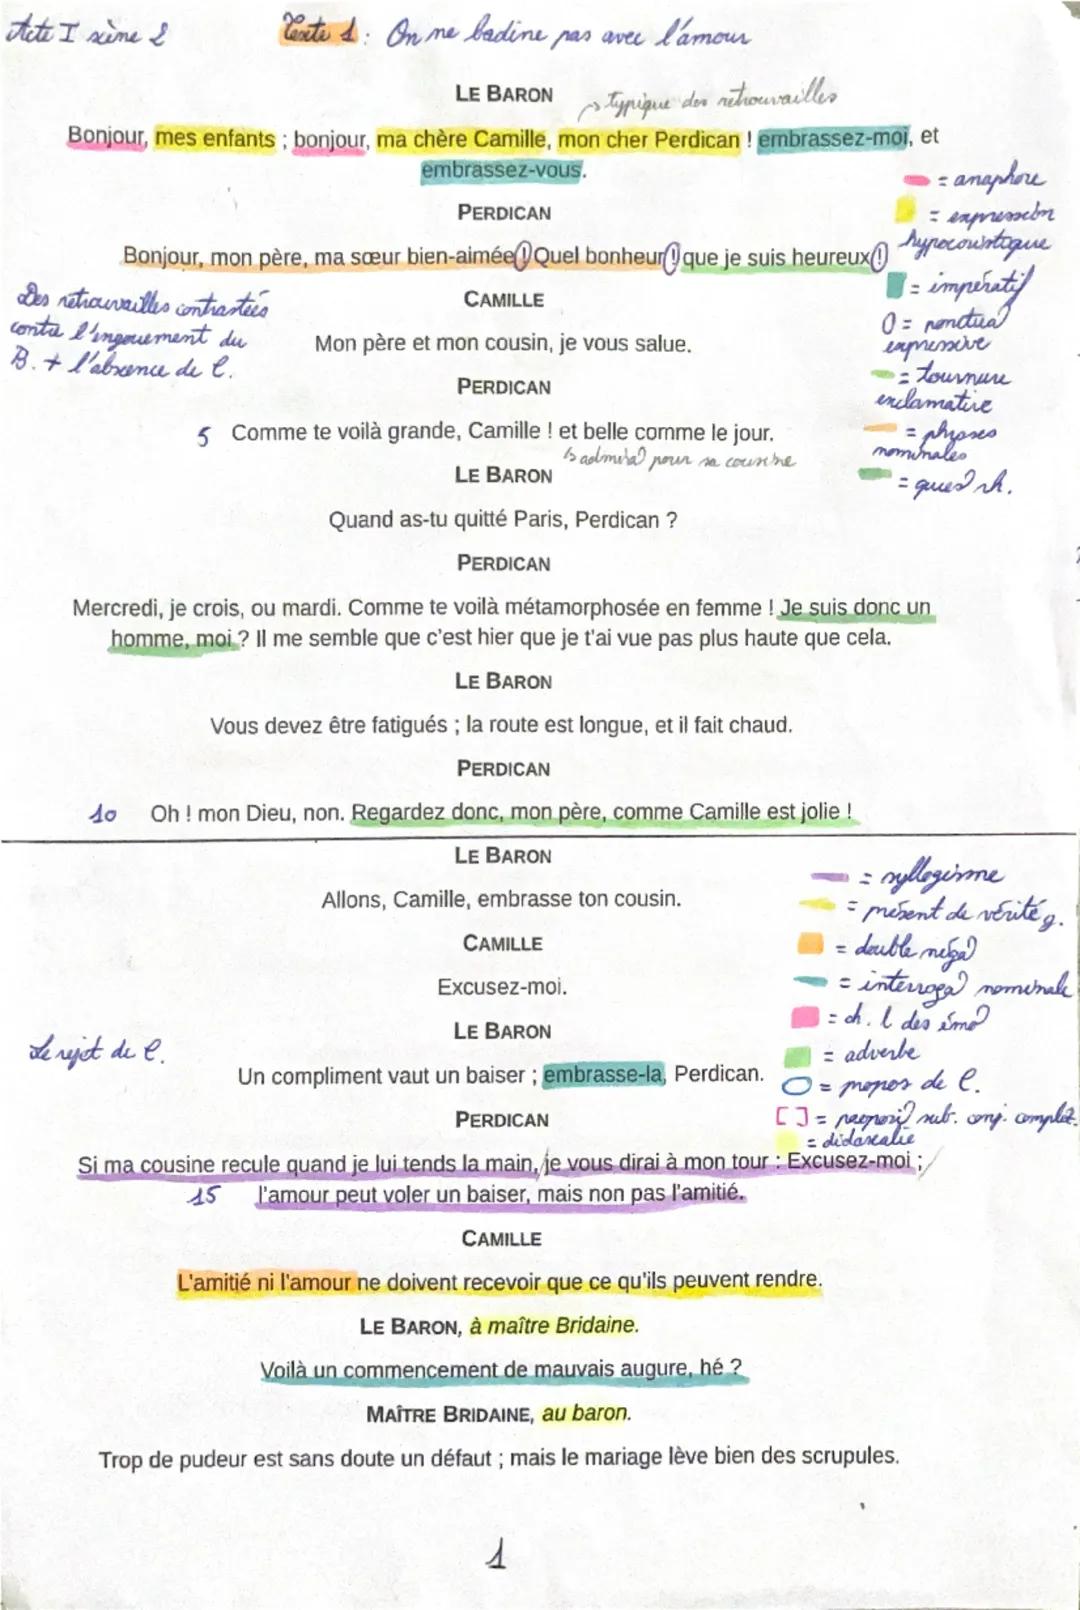 Acte I scène 2
Texte 1 : On ne badine pas avec l'amour
LE BARON
→ typique des retrouvailles
Bonjour, mes enfants ; bonjour, ma chère Camille, mon cher Perdican ! embrassez-moi, et
embrassez-vous.
= anaphore
PERDICAN
= expression
hypocoristique
Bonjour, mon père, ma sœur bien-aimée ! Quel bonheur ! que je suis heureux !
= impératif
Des retrouvailles contrastées
contre l'engouement du
B. + l'absence de C.
CAMILLE
Mon père et mon cousin, je vous salue.
0 = ponctua°
expressive
PERDICAN
= tournure
exclamative
5 Comme te voilà grande, Camille ! et belle comme le jour.
↳ admira° pour sa cousine
= phrases
nominales
LE BARON
= ques° rh.
Quand as-tu quitté Paris, Perdican ?
PERDICAN
Mercredi, je crois, ou mardi. Comme te voilà métamorphosée en femme ! Je suis donc un
homme, moi ? Il me semble que c'est hier que je t'ai vue pas plus haute que cela.
LE BARON
Vous devez être fatigués ; la route est longue, et il fait chaud.
PERDICAN
10 Oh ! mon Dieu, non. Regardez donc, mon père, comme Camille est jolie !
LE BARON
= syllogisme
Allons, Camille, embrasse ton cousin.
= présent de vérité g.
CAMILLE
= double néga°
Excusez-moi.
= interroga° nominale
LE BARON
= ch. l des émo°
Le rejet de C.
= adverbe
Un compliment vaut un baiser ; embrasse-la, Perdican.
= propos de C.
PERDICAN
[ ] = proposi° sub. conj. complét.
= didascalie
Si ma cousine recule quand je lui tends la main, / je vous dirai à mon tour : Excusez-moi ; /
15 l'amour peut voler un baiser, mais non pas l'amitié.
CAMILLE
L'amitié ni l'amour ne doivent recevoir que ce qu'ils peuvent rendre.
LE BARON, à maître Bridaine.
Voilà un commencement de mauvais augure, hé ?
MAÎTRE BRIDAINE, au baron.
Trop de pudeur est sans doute un défaut ; mais le mariage lève bien des scrupules.
1